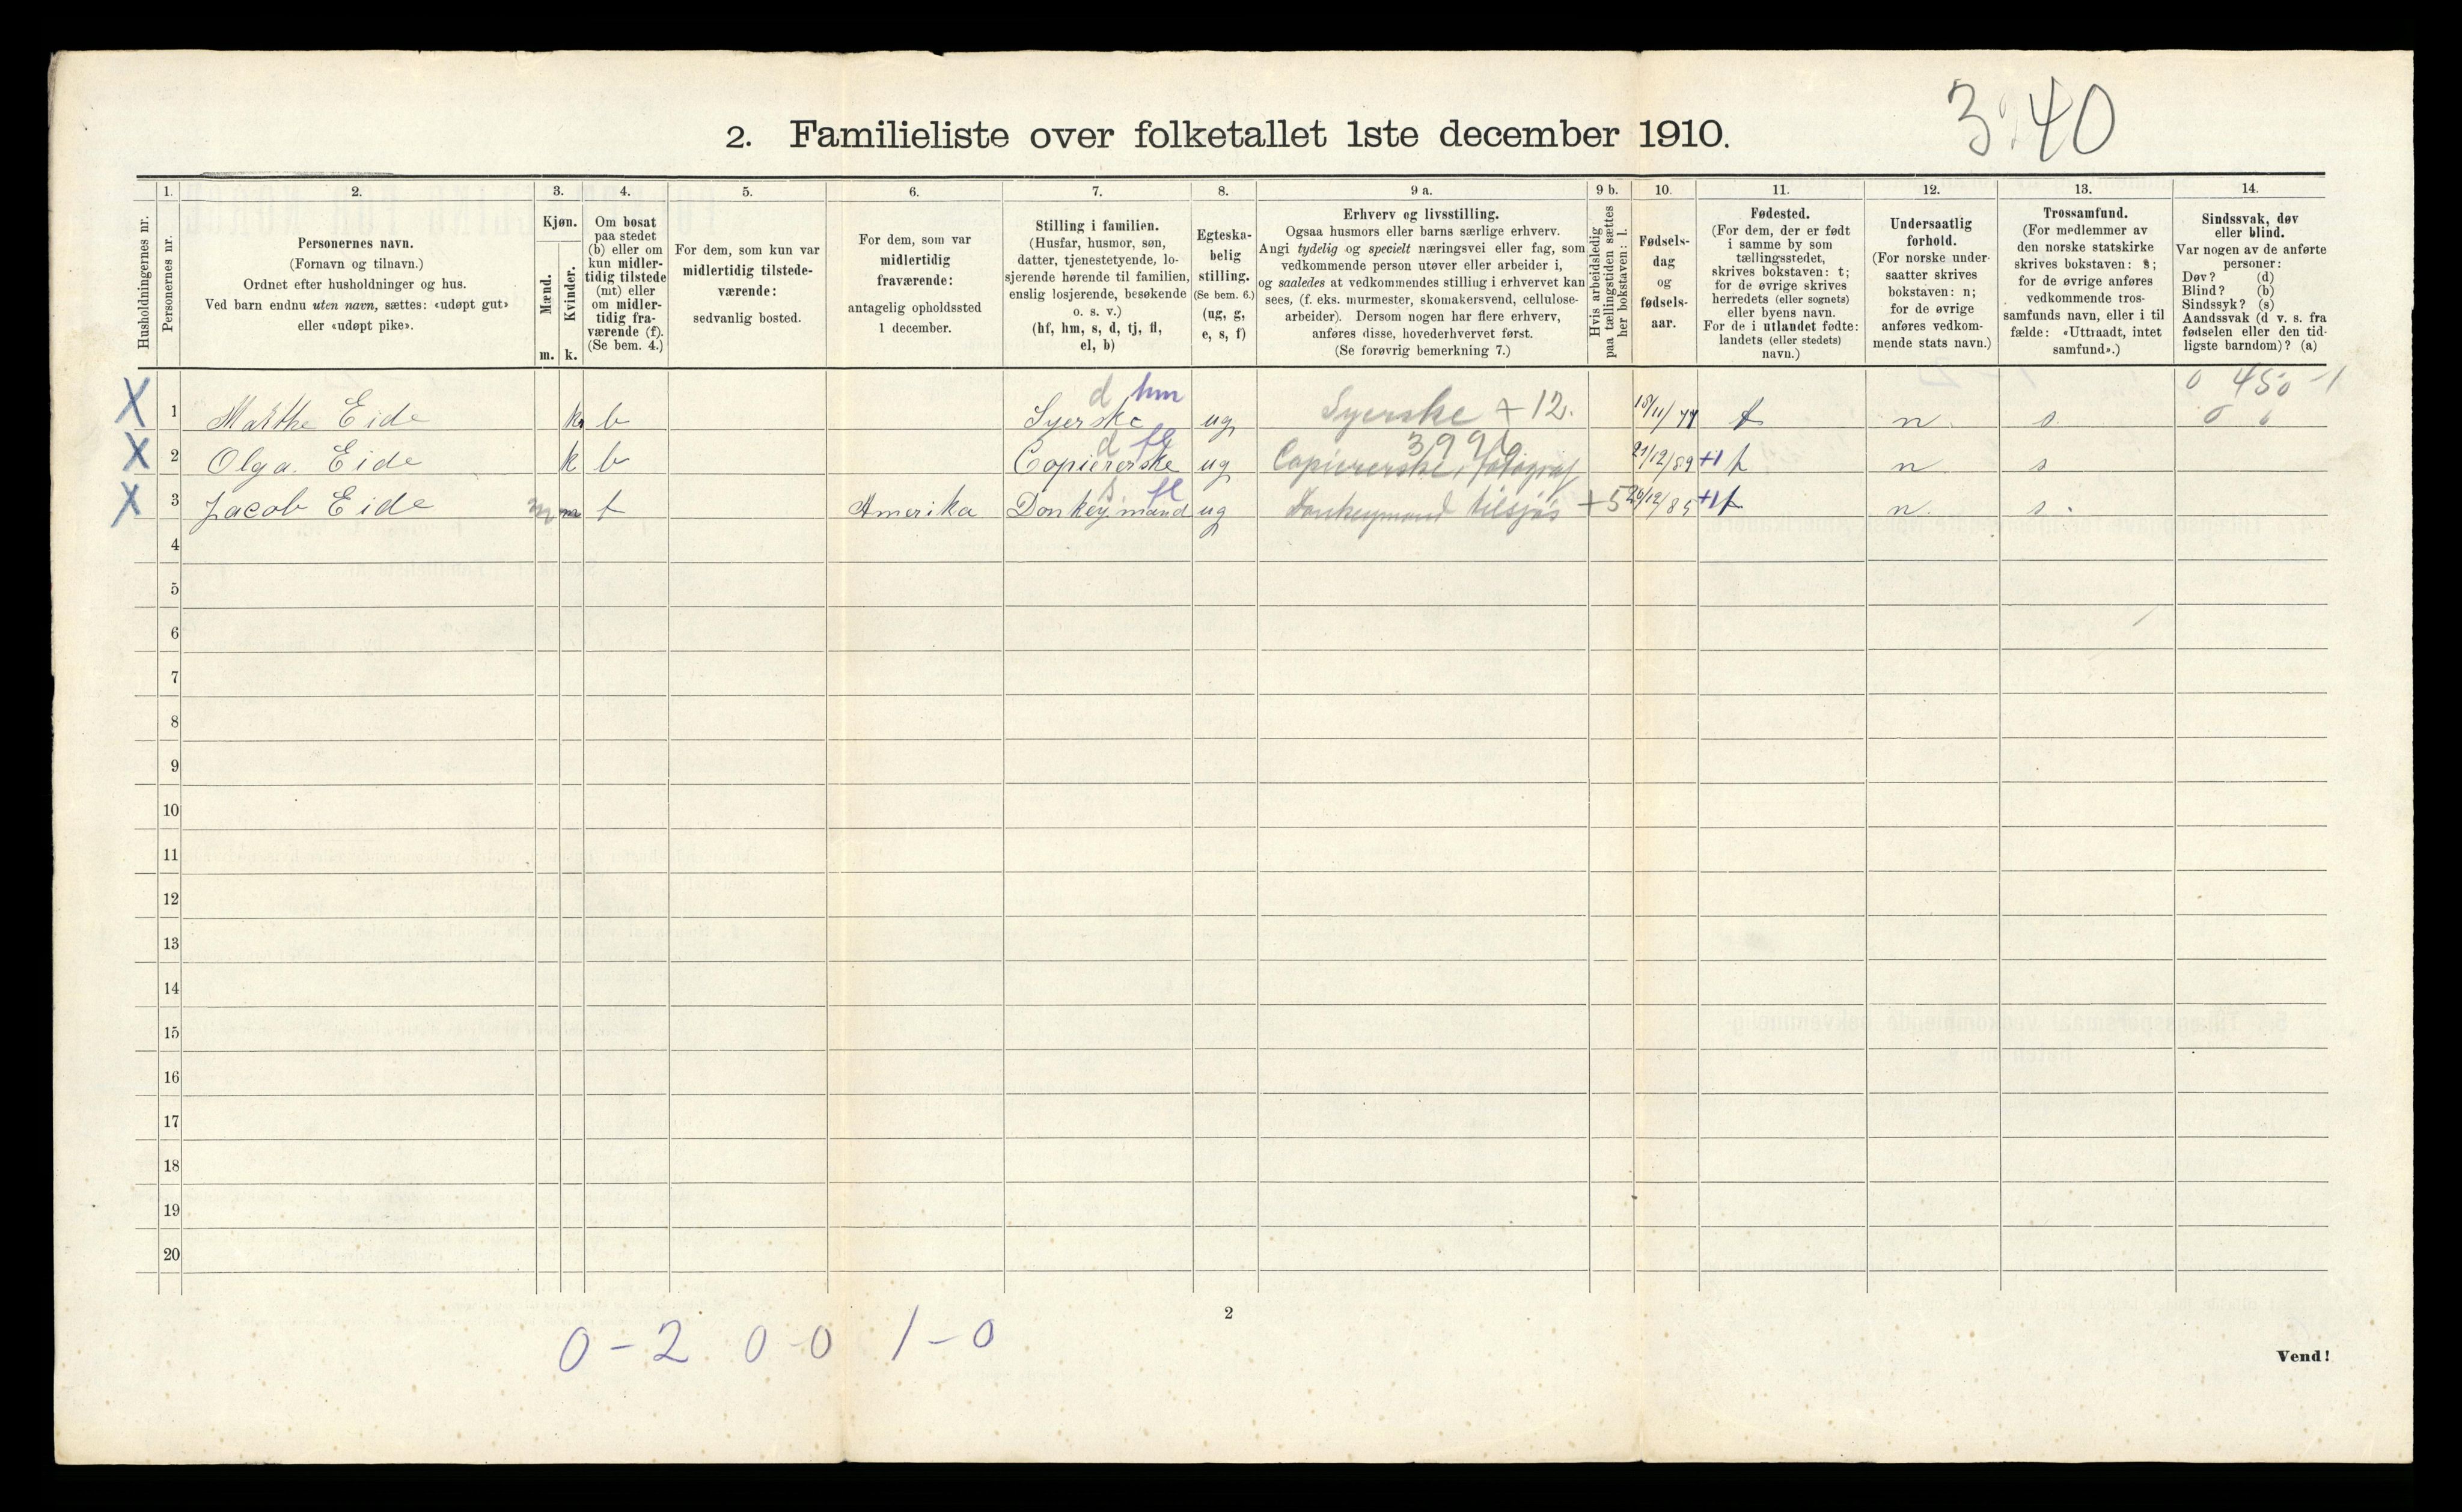 3.40
2. Familieliste over folketallet 1ste december 1910.
1. 2. 3. 4. 5. 6. 7. 8. 9 a. 9 b. 10. 11. 12. 13. 14.
Husholdningernes nr.
Personernes nr.
Personernes navn.
(Fornavn og tilnavn.)
Ordnet efter husholdninger og hus.
Ved barn endnu uten navn, sættes: «udøpt gut»
eller «udøpt pike».
Kjøn.
Mænd.
Kvinder.
m. k.
Om bosat
paa stedet
(b) eller om
kun midler-
tidig tilstede
(mt) eller
om midler-
tidig fra-
værende (f).
(Se bem. 4.)
For dem, som kun var
midlertidig tilstede-
værende:
sedvanlig bosted.
For dem, som var
midlertidig
fraværende:
antagelig opholdssted
1 december.
Stilling i familien.
(Husfar, husmor, søn,
datter, tjenestetyende, lo-
sjerende hørende til familien,
enslig losjerende, besøkende
o. s. v.)
(hf, hm, s, d, tj, fl,
el, b)
Egteska-
belig
stilling.
(Se bem. 6.)
(ug, g,
e, s, f)
Erhverv og livsstilling.
Ogsaa husmors eller barns særlige erhverv.
Angi tydelig og specielt næringsvei eller fag, som
vedkommende person utøver eller arbeider i,
og saaledes at vedkommendes stilling i erhvervet kan
sees, (f. eks. murmester, skomakersvend, cellulose-
arbeider). Dersom nogen har flere erhverv,
anføres disse, hovederhvervet først.
(Se forøvrig bemerkning 7.)
Hvis arbeidsledig
paa tællingstiden sættes
her bokstaven: l.
Fødsels-
dag
og
fødsels-
aar.
Fødested.
(For dem, der er født
i samme by som
tællingsstedet,
skrives bokstaven: t;
for de øvrige skrives
herredets (eller sognets)
eller byens navn.
For de i utlandet fødte:
landets (eller stedets)
navn.)
Undersaatlig
forhold.
(For norske under-
saatter skrives
bokstaven: n;
for de øvrige
anføres vedkom-
mende stats navn.)
Trossamfund.
(For medlemmer av
den norske statskirke
skrives bokstaven: s;
for de øvrige anføres
vedkommende tros-
samfunds navn, eller i til
fælde: «Uttraadt, intet
samfund».)
Sindssvak, døv
eller blind.
Var nogen av de anførte
personer:
Døv? (d)
Blind? (b)
Sindssyk? (s)
Aandssvak (d v. s. fra
fødselen eller den tid-
ligste barndom)? (a)
d hm 0 450-1
X 1 Marthe Eide k b Syerske ug Syerske + 12. 18/11/77 t n. s. 0 0
d fl
X 2 Olga Eide k b Copiererske ug Copiererske i fotograf 21/12/89 +1 t n s
s. fl
X 3 Jacob Eide m f Amerika Donkeymand ug Donkeymand tilsjøs +5 26/12/85 +1 t n. s.
4
5
6
7
8
9
10
11
12
13
14
15
16
17
18
19
20
2
0-2 0-0 1-0
Vend!